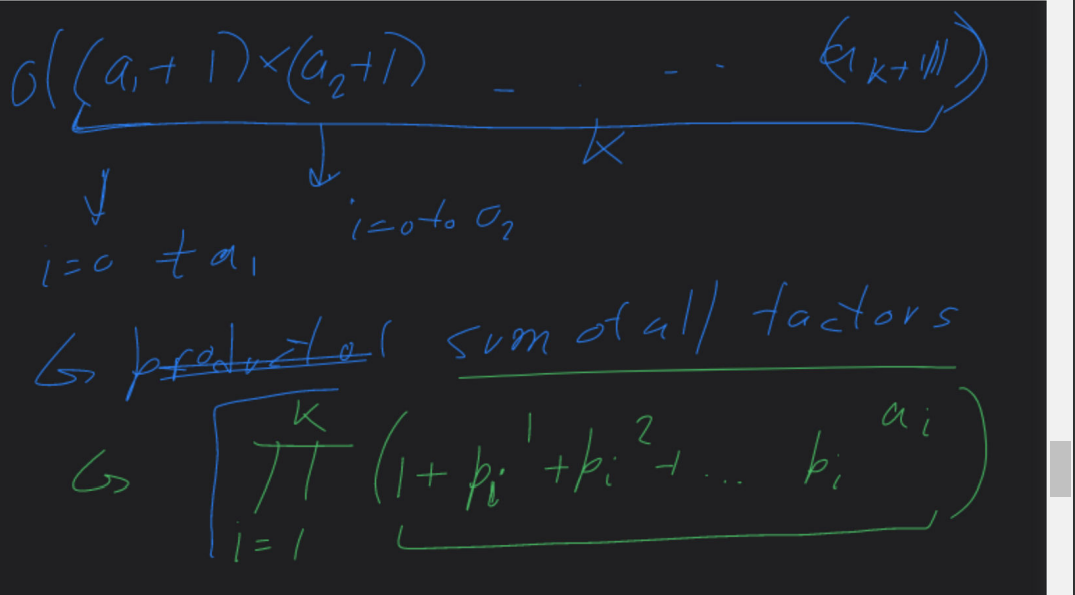 O((a₁+1)×(a₂+1) _ . - - (a k+1))
K
i=0 to a₂
i=0 t a₁
product of sum of all factors
K
π (1+pᵢ¹+pᵢ²+... pᵢ^aᵢ)
i=1